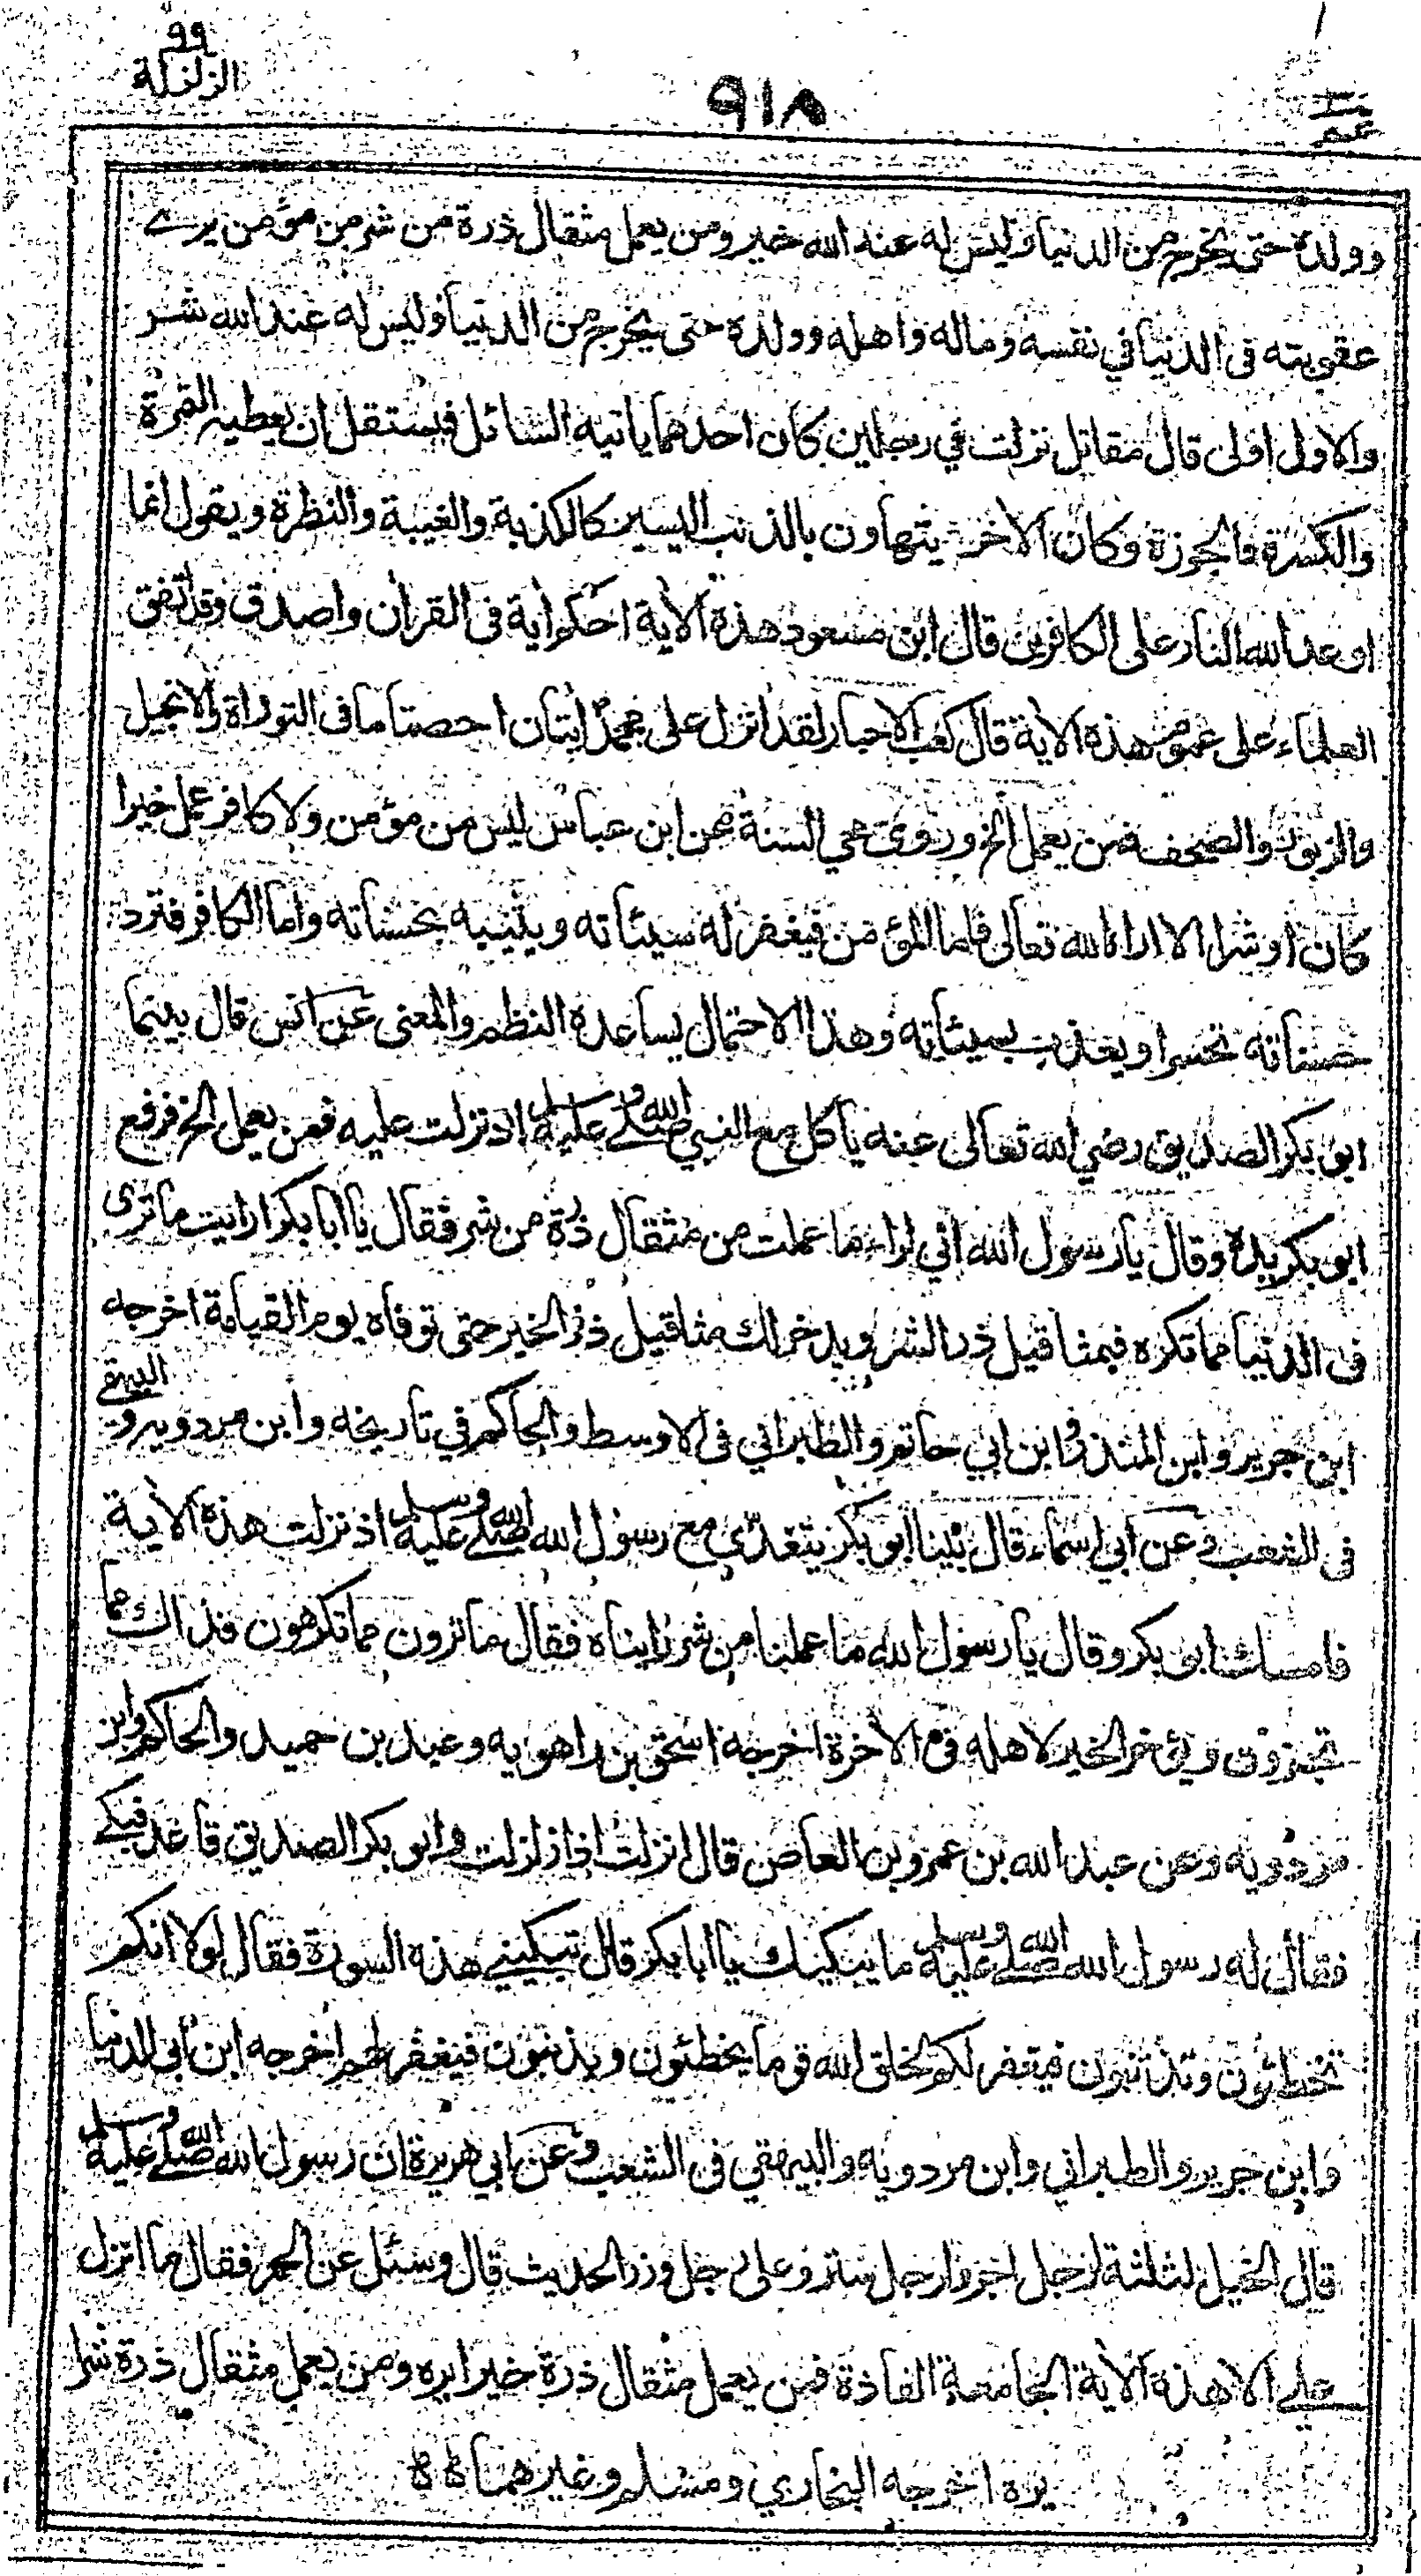 ٩٩
الزلزلة
٩١٨
عم
وولده حتى يخرج من الدنيا وليس له عند الله خير ومن يعمل مثقال ذرة من شر من مؤمن يرے
عقوبته فى الدنيا في نفسه وماله واهله وولده حتى يخرج من الدنيا وليس له عند الله شر
والاول اولى قال مقاتل نزلت في رجلين كان احدهما ياتيه السائل فيستقل ان يعطيه التمرة
والكسرة والجوزة وكان الاخر يتهاون بالذنب اليسير كالكذبة والغيبة والنظرة ويقول انما
اوعد الله النار على الكافرين قال ابن مسعود هذه الاية احكم اية فى القران واصدق وقد اتفق
العلماء على عموم هذه الاية قال كعب الاحبار لقد انزل على محمد ايتان احصتا ما فى التوراة والانجيل
والزبور والصحف فمن يعمل الخ وروى محي السنة عن ابن عباس ليس من مؤمن ولا كافر عمل خيرا
كان او شرا الا اراه الله تعالى فاما المؤمن فيغفر له سيئاته ويثيبه بحسناته واما الكافر فترد
حسناته تحسرا ويعذب بسيئاته وهذا الاحتمال يساعده النظم والمعنى عن انس قال بينما
ابو بكر الصديق رضي الله تعالى عنه يأكل مع النبي صلى الله عليه وسلم اذ نزلت عليه فمن يعمل الخ فرفع
ابو بكر يده وقال يا رسول الله اني لراء ما عملت من مثقال ذرة من شر فقال يا ابا بكر ارايت ما ترى
فى الدنيا مما تكره فبمثاقيل ذر الشر ويدخر لك مثاقيل ذر الخير حتى توفاه يوم القيامة اخرجه
ابن جرير وابن المنذر وابن ابي حاتم والطبراني فى الاوسط والحاكم في تاريخه وابن مردويه والبيهقے
فى الشعب وعن ابي اسماء قال بينا ابو بكر يتغدى مع رسول الله صلى الله عليه وسلم اذ نزلت هذه الاية
فامسك ابو بكر وقال يا رسول الله ما عملنا من شر رايناه فقال ما ترون مما تكرهون فذاك مما
تجزون ويؤخر الخير لاهله فى الاخرة اخرجه اسحق بن راهويه وعبد بن حميد والحاكم وابن
مردويه وعن عبد الله بن عمرو بن العاص قال انزلت اذا زلزلت وابو بكر الصديق قاعد فبكے
فقال له رسول الله صلى الله عليه وسلم ما يبكيك يا ابا بكر قال تبكينے هذه السورة فقال لولا انكم
تخطئون وتذنبون فيغفر لكم لخلق الله قوما يخطئون ويذنبون فيغفر لهم اخرجه ابن ابي الدنيا
وابن جرير والطبراني وابن مردويه والبيهقي فى الشعب وعن ابي هريرة ان رسول الله صلى الله عليه وسلم
قال الخيل لثلثة لرجل اجر ولرجل ستر وعلى رجل وزر الحديث قال وسئل عن الحمر فقال ما انزل
علے الا هذه الاية الجامعة الفاذة فمن يعمل مثقال ذرة خيرا يره ومن يعمل مثقال ذرة شرا
يره اخرجه البخاري ومسلم وغيرهما